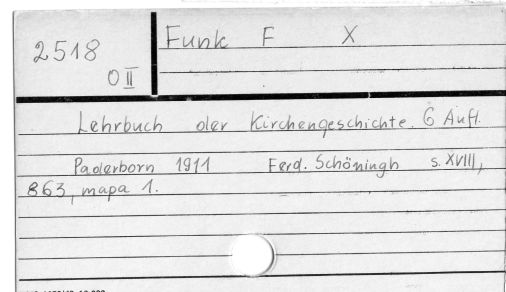 2518
O II
Funk F X
Lehrbuch der Kirchengeschichte. 6 Aufl.
Paderborn 1911 Ferd. Schöningh s. XVIII,
863, mapa 1.